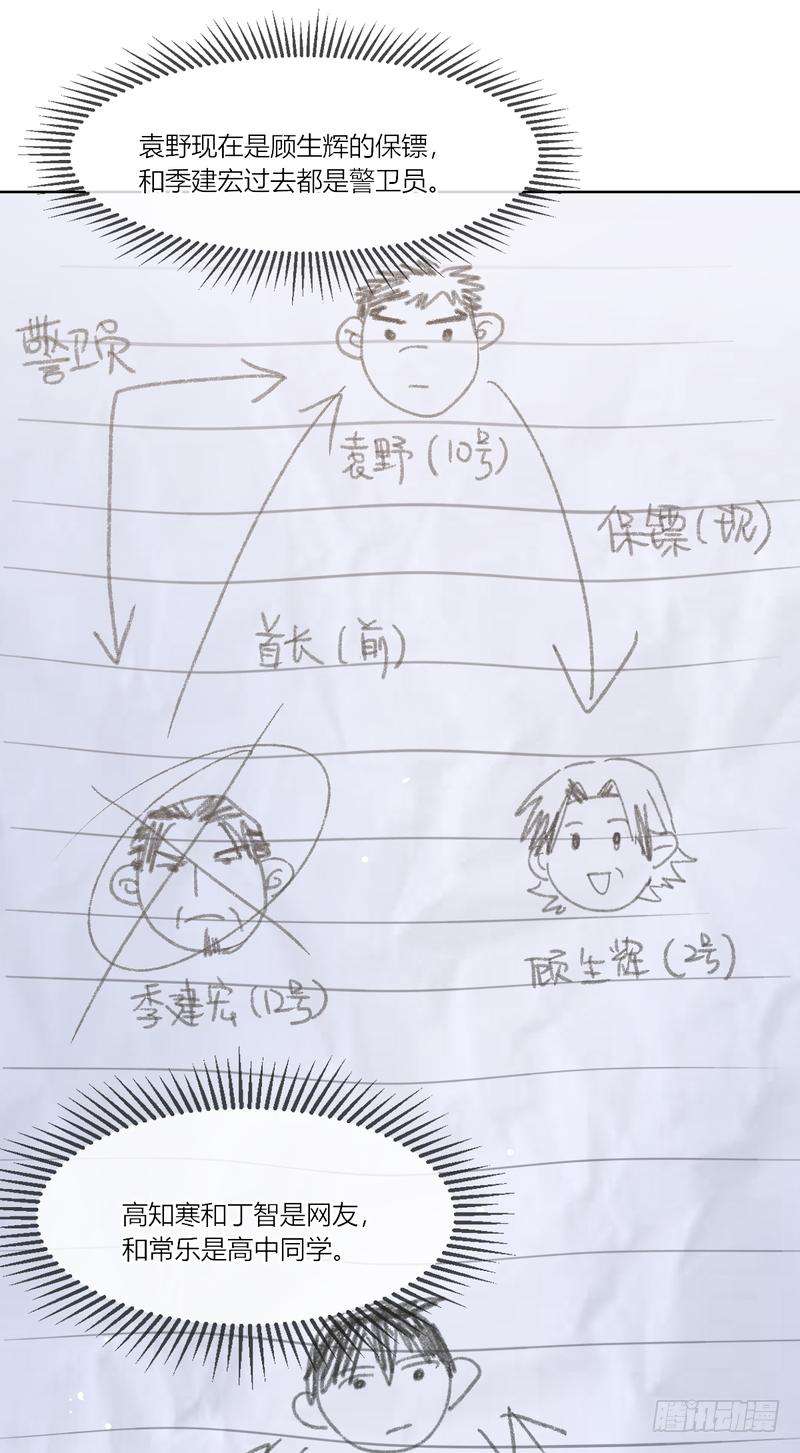 袁野现在是顾生辉的保镖，
和季建宏过去都是警卫员。
警卫员
袁野(10号)
保镖(现)
首长(前)
顾生辉(2号)
季建宏(12号)
高知寒和丁智是网友，
和常乐是高中同学。
腾讯动漫